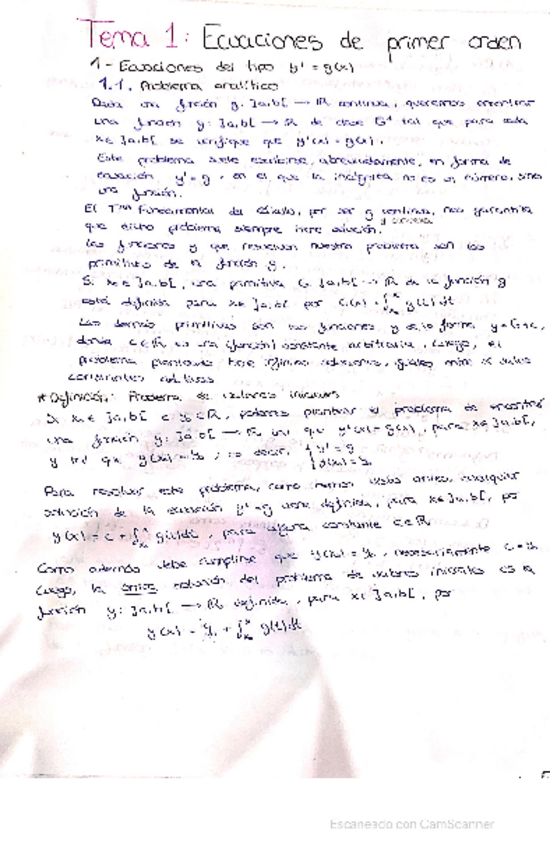 Tema 1: Ecuaciones de primer orden
1- Ecuaciones del tipo y' = g(x)
1.1. Problema analítico
Dada una función g: ]a,b[ → ℝ continua, queremos encontrar
una función y: ]a,b[ → ℝ de clase C¹ tal que para cada
x ∈ ]a,b[ se verifique que y'(x) = g(x).
Este problema suele escribirse, abreviadamente, en forma de
ecuación y' = g, en el que la incógnita no es un número, sino
una función.
El Tma Fundamental del Cálculo, por ser g continua, nos garantiza
que dicho problema siempre tiene solución.
Las funciones y que resuelven nuestro problema son las
primitivas de la función g.
Si x₀ ∈ ]a,b[, una primitiva G: ]a,b[ → ℝ de la función g
está definida para x ∈ ]a,b[ por G(x) = ∫ g(t) dt
Las demás primitivas son las funciones y de la forma y = G + c,
donde c ∈ ℝ, es una (función) constante arbitraria. Luego, el
problema planteado tiene infinitas soluciones, iguales entre sí salvo
constantes aditivas
* Definición: Problema de valores iniciales
Si x₀ ∈ ]a,b[ e y₀ ∈ ℝ, podemos plantear el problema de encontrar
una función y: ]a,b[ → ℝ tal que y'(x) = g(x), para x ∈ ]a,b[,
y tal que y(x₀) = y₀, es decir, { y' = g
y(x₀) = y₀
Para resolver este problema, como hemos visto antes, cualquier
solución de la ecuación y' = g viene definida, para x ∈ ]a,b[, por
y(x) = c + ∫ g(t) dt, para alguna constante c ∈ ℝ
Como además debe cumplirse que y(x₀) = y₀, necesariamente c = y₀.
Luego, la única solución del problema de valores iniciales es la
función y: ]a,b[ → ℝ definida, para x ∈ ]a,b[, por
y(x) = y₀ + ∫ g(t) dt
Escaneado con CamScanner